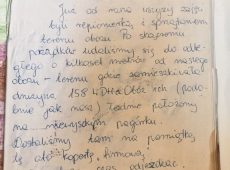 Już od rana wszyscy zajęci
byli repionierką i sprzątaniem
terenu obozu. Po skończeniu
porządków udaliśmy się do odle-
głego o kilkaset metrów od naszego
obozu - terenu gdzie zamieszkiwała
drużyna 158 ŁDH. Obóz ich (podo-
bnie jak nasz) ładnie położony
na pagórku.
Dostaliśmy tam na pamiątkę
tę oto kopertę firmową.
czas odjeżdżać